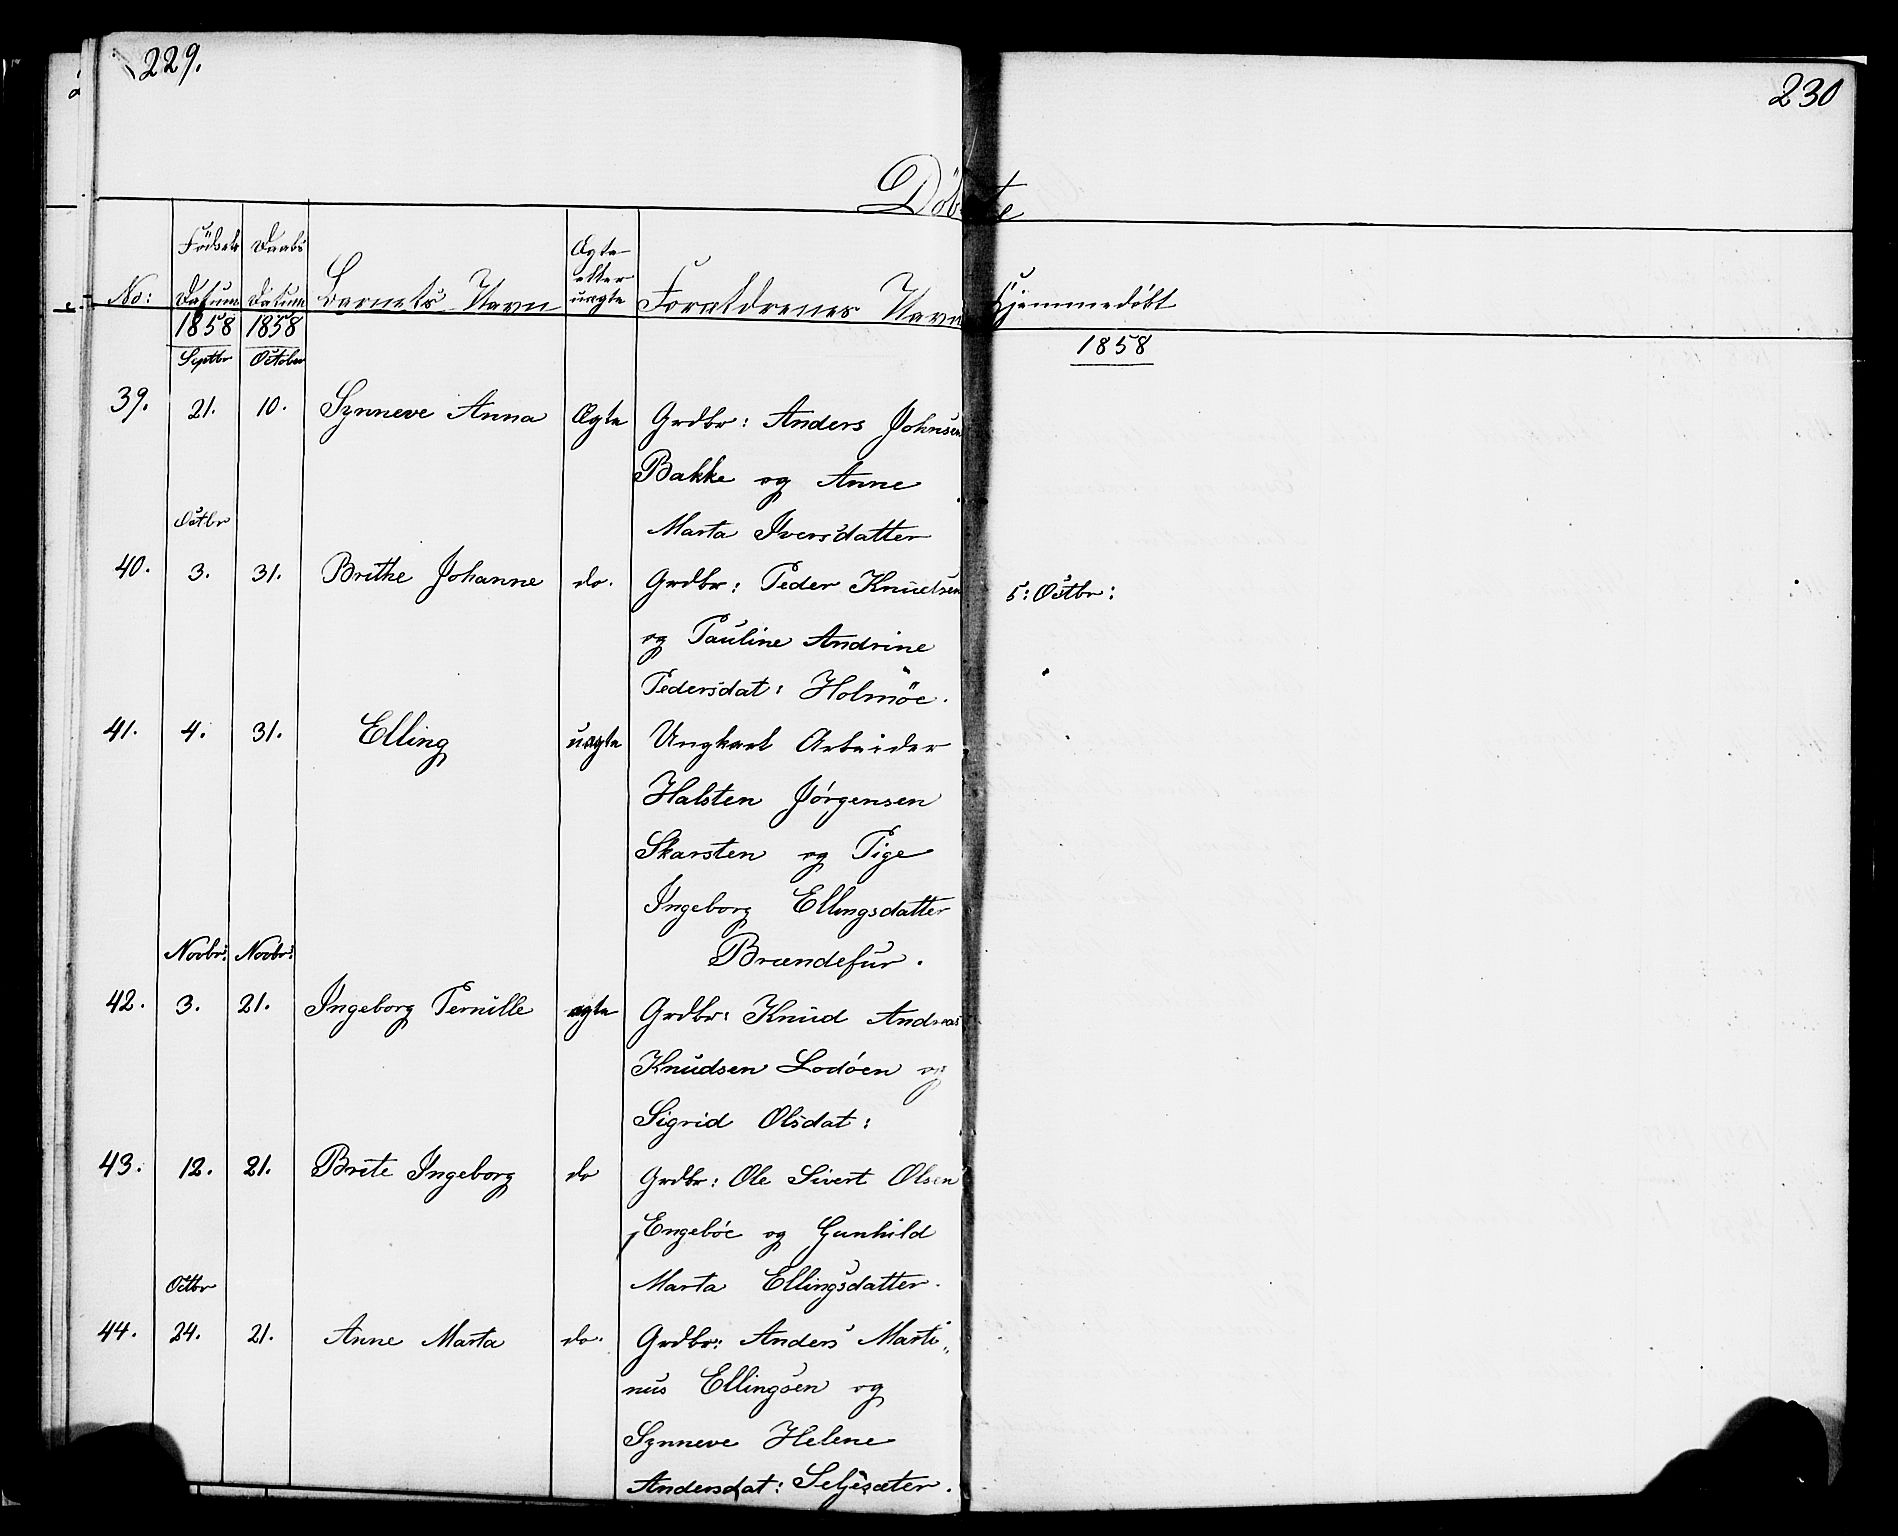 229.
230
Döbte
No: Födsels Datum Daabs Datum Barnets Navn Ægte eller uægte Forældrenes Navn Hjemmedöbt
1858 1858
1858
Septbr October
39. 21. 10. Synneve Anna Ægte Grdbr: Anders Johnsen
Bakke og Anne
Marta Iversdatter
Octbr
40. 3. 31. Brithe Johanne do. Grdbr: Peder Knudsen 5: Octbr:
og Pauline Andrine
Pedersdat: Holmöe.
41. 4. 31. Elling uægte Ungkarl Arbeider
Halsten Jörgensen
Skarsten og Pige
Ingeborg Ellingsdatter
Brændefur.
Novbr: Novbr:
42. 3. 21. Ingeborg Pernille ægte Grdbr: Knud Andreas
Knudsen Lodöen og
Sigrid Olsdat:
43. 12. 21. Brite Ingeborg do Grdbr: Ole Sivert Olsen
Engeböe og Gunhild
Marta Ellingsdatter.
Octbr
44. 24. 21. Anne Marta do. Grdbr: Anders Marti„
nus Ellingsen og
Synneve Helene
Andersdat: Seljesæter.